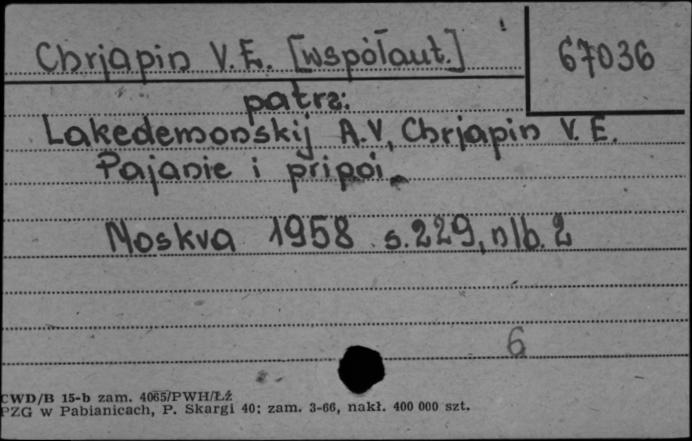 Chrjapin V.E. [współaut.]
67036
patrz:
Lakedemonskij A.V, Chrjapin V.E.
Pajanie i pripoi
Moskva 1958 s.229, nlb. 2
6
CWD/B 15-b zam. 4065/PWH/Łź
PZG w Pabianicach, P. Skargi 40; zam. 3-66, nakł. 400 000 szt.